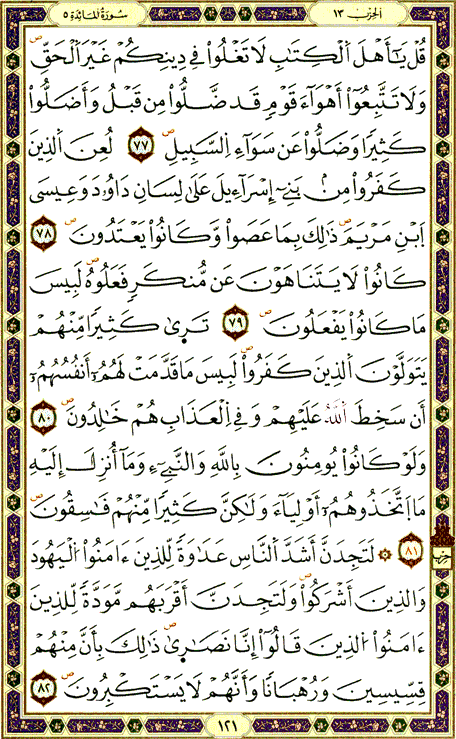 سُورَةُ المَائِدَةِ ٥
الحِزْبُ ١٣
قُلْ يَـٰٓأَهْلَ اَ۬لْكِتَـٰبِ لَا تَغْلُواْ فِے دِينِكُمْ غَيْرَ اَ۬لْحَقِّ ص
وَلَا تَتَّبِعُوٓاْ أَهْوَآءَ قَوْمٖ قَد ضَّلُّواْ مِن قَبْلُ وَأَضَلُّواْ
كَثِيراٗ وَضَلُّواْ عَن سَوَآءِ اِ۬لسَّبِيلِ ص ٧٧ لُعِنَ اَ۬لذِينَ
كَفَرُواْ مِنۢ بَنِےٓ إِسْرَآءِيلَ عَلَيٰ لِسَانِ دَاوُۥدَ وَعِيسَى
اَ۪بْنِ مَرْيَمَ ص ذَٰلِكَ بِمَا عَصَواْ وَّكَانُواْ يَعْتَدُونَ ص ٧٨
كَانُواْ لَا يَتَنَاهَوْنَ عَن مُّنكَرٖ فَعَلُوهُ ص لَبِيسَ
مَا كَانُواْ يَفْعَلُونَ ص ٧٩ تَر۪يٰ كَثِيراٗ مِّنْهُمْ
يَتَوَلَّوْنَ اَ۬لذِينَ كَفَرُواْ ص لَبِيسَ مَا قَدَّمَتْ لَهُمُۥٓ أَنفُسُهُمُۥٓ
أَن سَخِطَ اَ۬للَّهُ عَلَيْهِمْ وَفِے اِ۬لْعَذَابِ هُمْ خَـٰلِدُونَ ص ٨٠
وَلَوْ كَانُواْ يُومِنُونَ بِاللَّهِ وَالنَّبِےٓءِ وَمَآ أُنزِلَ إِلَيْهِ
مَا اَ۪تَّخَذُوهُمُۥٓ أَوْلِيَآءَ وَلَـٰكِنَّ كَثِيراٗ مِّنْهُمْ فَـٰسِقُونَ ص
٨١ ۞ لَتَجِدَنَّ أَشَدَّ اَ۬لنَّاسِ عَدَٰوَةٗ لِّلذِينَ ءَامَنُواْ اُ۬لْيَهُودَ
وَالذِينَ أَشْرَكُواْ ص وَلَتَجِدَنَّ أَقْرَبَهُم مَّوَدَّةٗ لِّلذِينَ
ءَامَنُواْ اُ۬لذِينَ قَالُوٓاْ إِنَّا نَصَـٰر۪يٰ ص ذَٰلِكَ بِأَنَّ مِنْهُمْ
قِسِّيسِينَ وَرُهْبَاناٗ وَأَنَّهُمْ لَا يَسْتَكْبِرُونَ ص ٨٢
حزب
١٢١